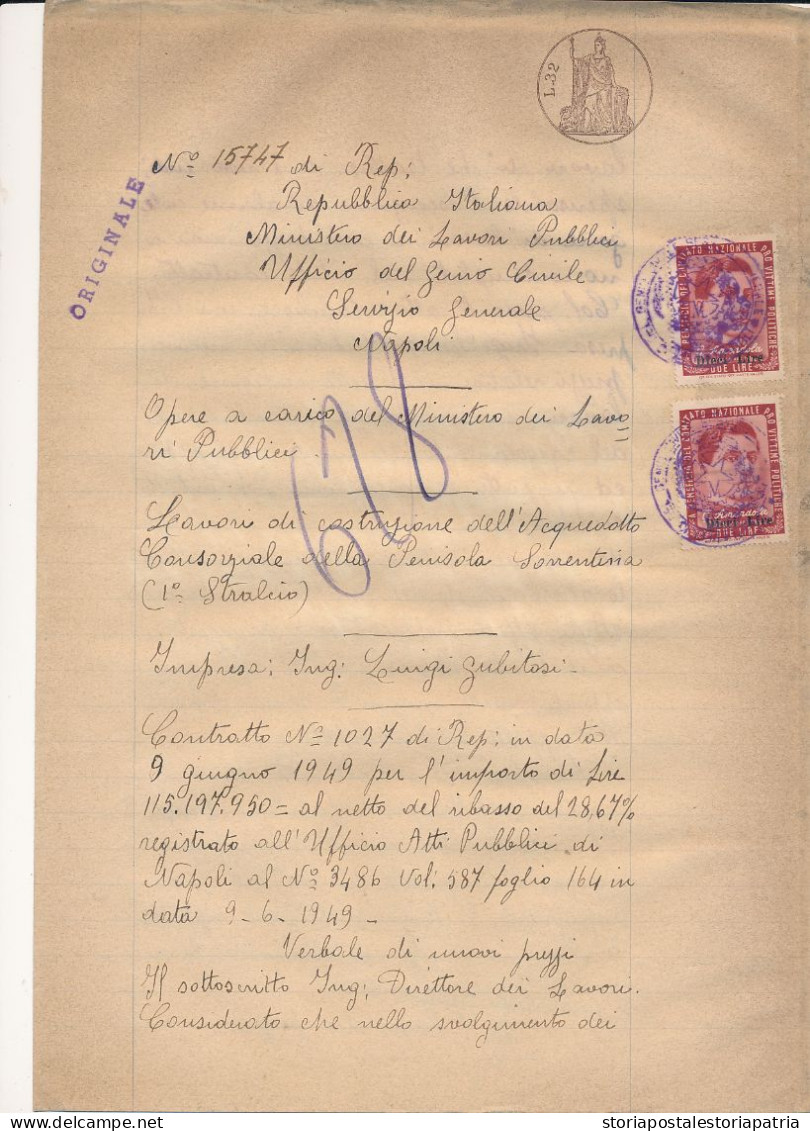 L. 32
ORIGINALE
Nº 15747 di Rep:
Repubblica Italiana
Ministero dei Lavori Pubblici
Ufficio del Genio Civile
Servizio Generale
Napoli
678
Opere a carico del Ministero dei Lavo
ri Pubblici.
Lavori di costruzione dell'Acquedotto
Consorziale della Penisola Sorrentina
(1º Stralcio)
Impresa: Ing: Luigi Gubitosi.
Contratto Nº 1027 di Rep: in data
9 giugno 1949 per l'importo di Lire
115.197.950= al netto del ribasso del 28,67%
registrato all'Ufficio Atti Pubblici di
Napoli al Nº 3486 Vol: 587 foglio 164 in
data 9-6-1949-
Verbale di nuovi prezzi
Il sottoscritto Ing: Direttore dei Lavori.
Considerato che nello svolgimento dei
COMITATO NAZIONALE PRO VITTIME POLITICHE
Dieci Lire
DUE LIRE
COMITATO NAZIONALE PRO VITTIME POLITICHE
Dieci Lire
DUE LIRE
storiapostalestoriapatria